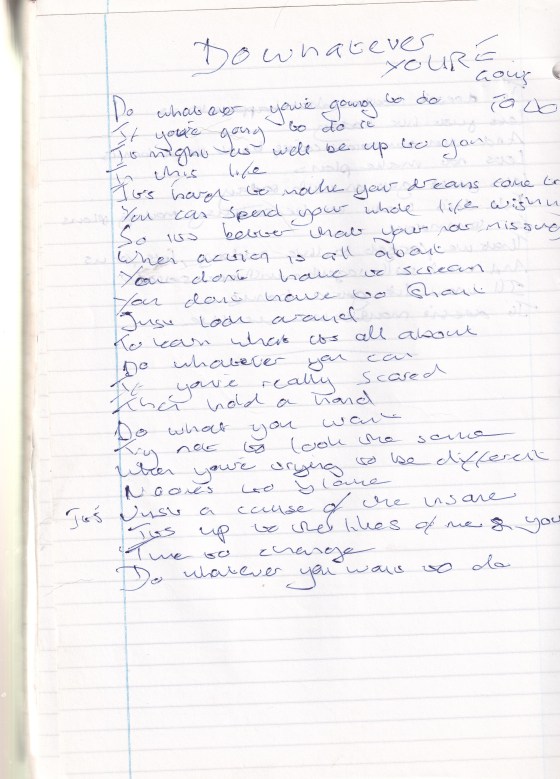 Do whatever
YOU'RE
going
TO DO
Do whatever you're going to do
If you're going to do it
It might as well be up to you
In this life
It's hard to make your dreams come
You can spend your whole life
So its better that your not missing
When action is all about
You don't have to scream
You don't have to shout
Just look around
To learn what its all about
Do whatever you can
If you're really scared
Then hold a hand
Do what you want
Try not to look the same
When you're trying to be different
No ones to blame
It's just a cause of the insane
Its up to the likes of me & you
Time to change
Do whatever you want to do